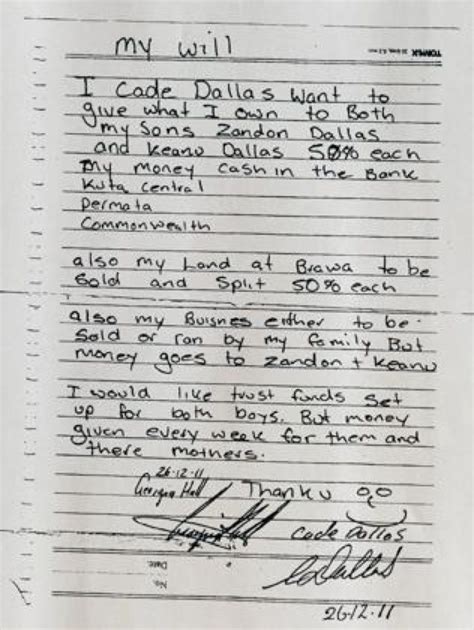 my will
TOMAX
I Cade Dallas want to
give what I own to Both
my Sons Zandon Dallas
and Keanu Dallas 50% each
my money cash in the Bank
Kuta Central
Permata
Commonwealth
also my Land at Brawa to be
Sold and Split 50% each
also my Buisnes either to be
Sold or ran by my family But
money goes to Zandon + Keanu
I would like trust funds set
up for both boys. But money
given every week for them and
there mothers.
26-12-11
Georgia Hall
Thank u
Cade Dallas
CDallas
No.
Date:
26.12.11